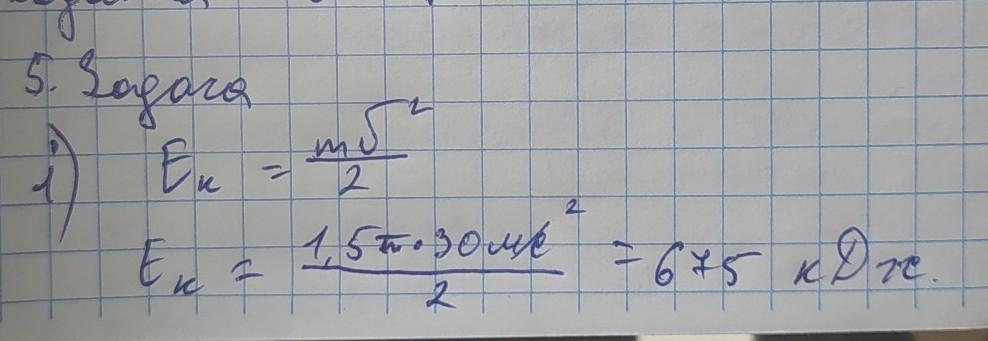 5. Задача
1) Eк = mv²/2
Eк = 1,5т·30м/с²/2 = 675 кДж.